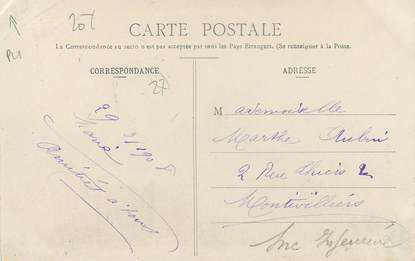 201
CARTE POSTALE
La Correspondance au recto n'est pas acceptée par tous les Pays Étrangers. (Se renseigner à la Poste.
CORRESPONDANCE
ADRESSE
27
29 3/1908
Amitiés à tous
Mademoiselle
Marthe Aubin
2 Rue Thiers 2
Montivilliers
Sne Inférieure